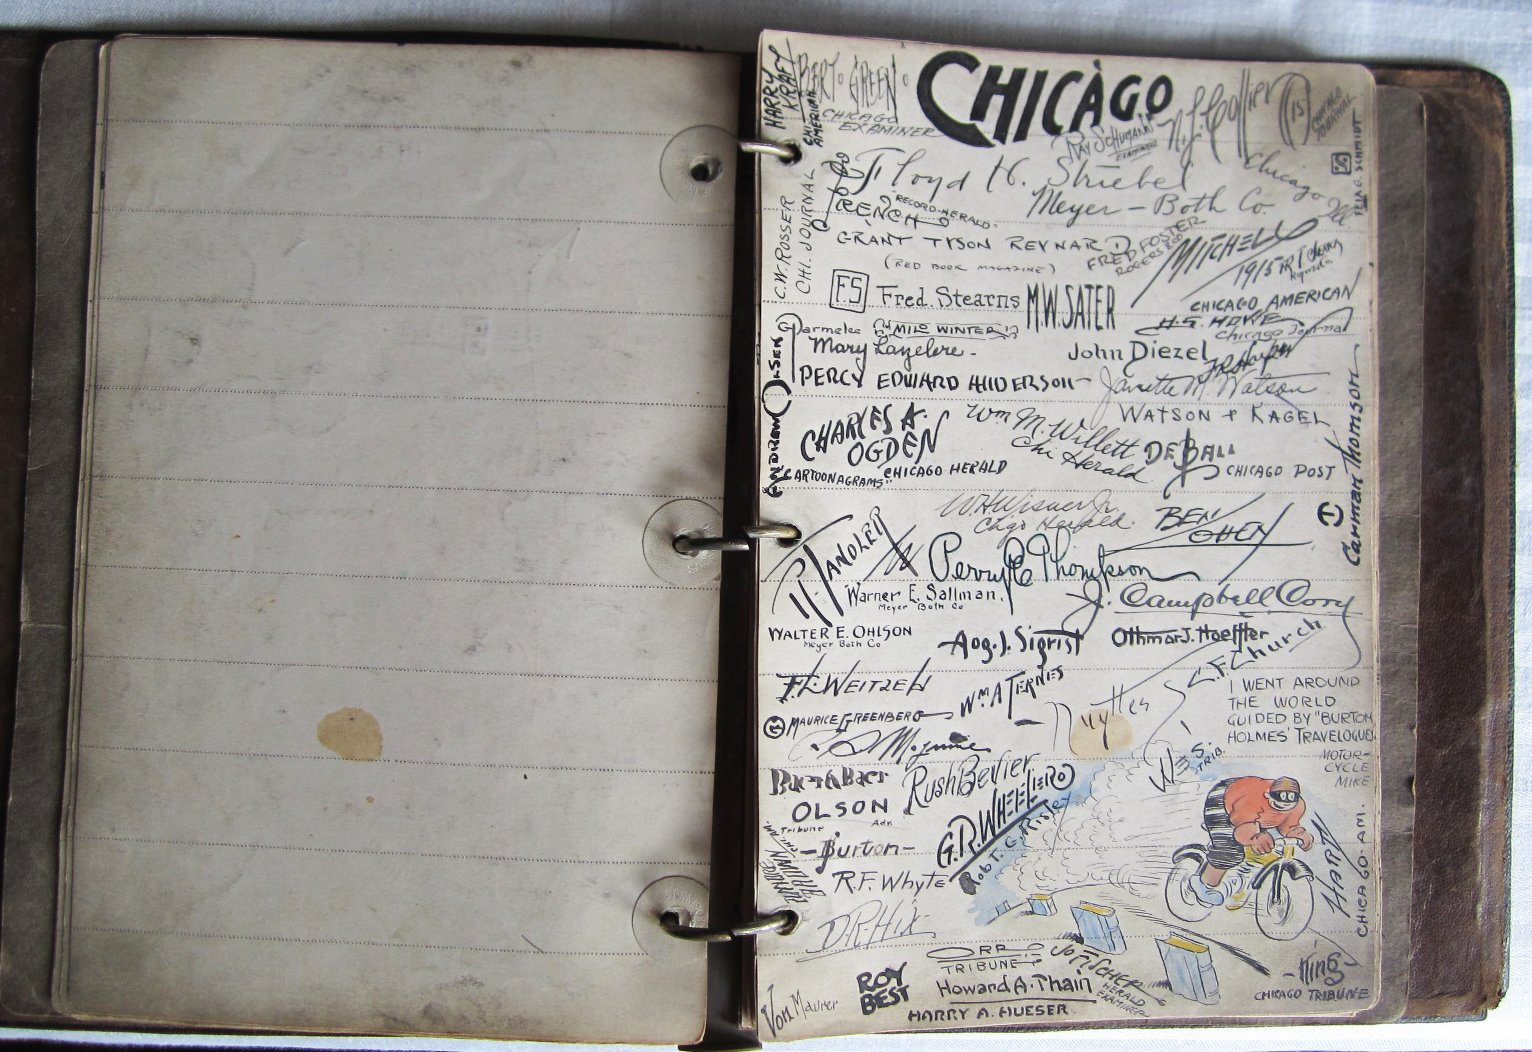 CHICAGO
HARRY KRAFT
CHI. AMERICAN
BERT GREEN
CHICAGO EXAMINER
RAY SCHUMANN
EXAMINER
Collier
15
CHICAGO JOURNAL
FELIX G. SCHMIDT
Floyd H. Striebel
Meyer - Both Co.
Chicago Ill
FRENCH
"RECORD-HERALD."
C.W. ROSSER
CHI. JOURNAL
GRANT TYSON REYNARD
(RED BOOK MAGAZINE)
FRED FOSTER
ROGERS
MITCHELL
1915
F.S
Fred. Stearns
M.W. SATER
CHICAGO AMERICAN
H.G. HOWE
Chicago Journal
Parmelee
"MILO WINTER"
Mary Lazelere.
John Diezel
PERCY EDWARD ANDERSON
Janette M. Watson
WATSON + KAGEL
ANDREW OLSEN
CHARLES A. OGDEN
"CARTOONAGRAMS" CHICAGO HERALD
Wm M. Willett
Chi Herald
DE BALL
CHICAGO POST
Carrman Thomson
W H Wisner Jr.
Chgo Herald.
BEN COHEN
Perry C Thompson
Warner E. Sallman.
Meyer Both Co
J. Campbell Cory
WALTER E. OHLSON
Meyer Both Co
Aog. J. Sigrist
Othmar J. Hoeffler
C.F. Church
F.L. WEITZEL
Wm A TERNES
MAURICE GREENBERG
I WENT AROUND
THE WORLD
GUIDED BY "BURTON
HOLMES' TRAVELOGUE"
MOTOR-
CYCLE
MIKE
TRIB.
RUSH BEVIER
OLSON
Adv.
Tribune
G.R. WHEELERO
Robt. C. Risley
-Burton-
R.F. Whyte
HARTY
CHICAGO. AM.
D.R. HIX
ORR
TRIBUNE
JO FISCHER
HERALD
EXAMINER
-King-
CHICAGO TRIBUNE
Von Maurer
ROY
BEST
Howard A. Thain
HARRY A. HUESER.